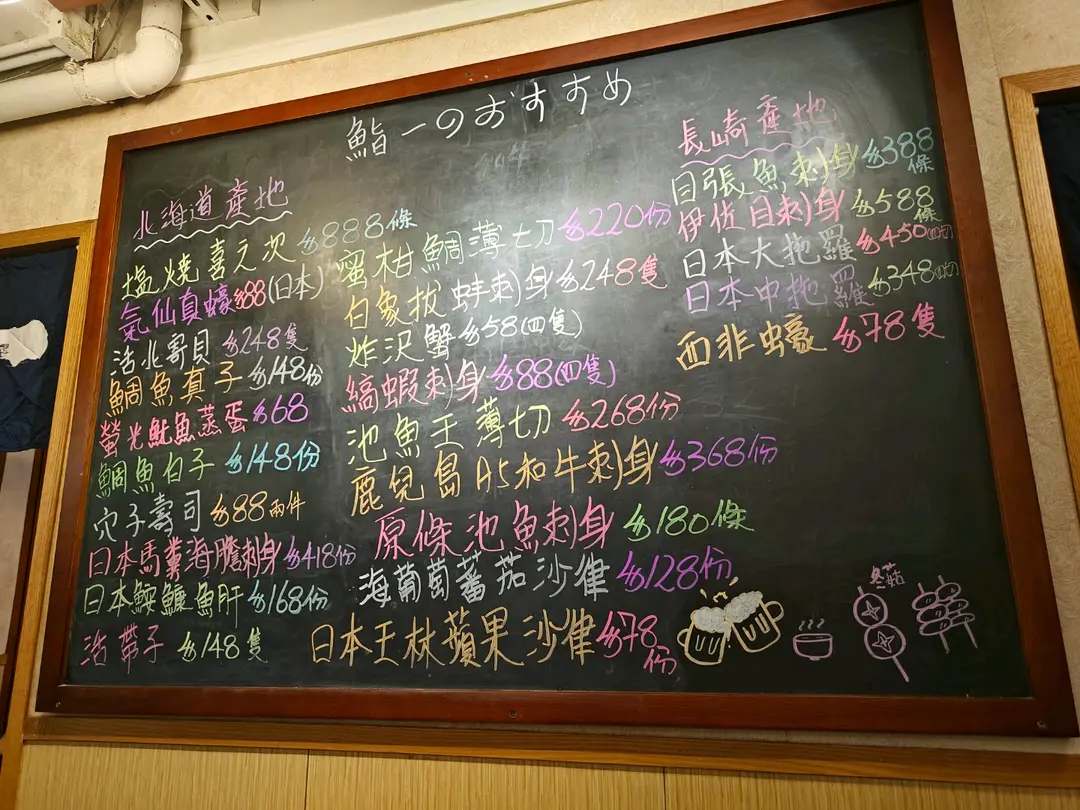 鮨一のおすすめ
北海道產地
塩燒喜之次 $888條
氣仙真蠔 $88(日本)
活北寄貝 $248隻
鯛魚真子 $148份
螢光魷魚蒸蛋 $68
鯛魚白子 $148份
穴子壽司 $88兩件
日本馬糞海膽刺身 $418份
日本鮟鱇魚肝 $168份
活帶子 $148隻
蜜柑鯛薄切 $220份
白象拔蚌刺身 $248隻
炸沢蟹 $58(四隻)
縞蝦刺身 $88(四隻)
池魚王薄切 $268份
鹿兒島A5和牛刺身 $368份
原條池魚刺身 $180條
海葡萄蕃茄沙律 $128份
日本王林蘋果沙律 $78份
長崎產地
目張魚刺身 $388條
伊佐目刺身 $588條
日本大拖羅 $450(四切)
日本中拖羅 $348(四切)
西非蠔 $78隻
冬菇